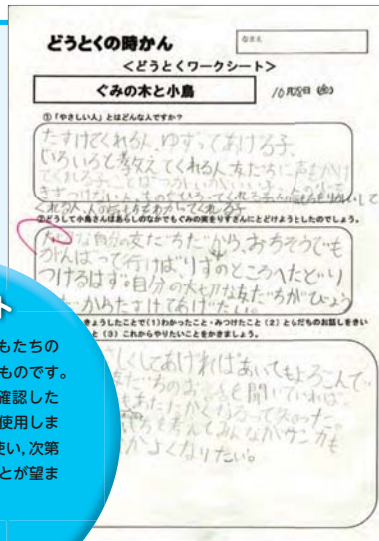 どうとくの時かん
なまえ
＜どうとくワークシート＞
ぐみの木と小鳥
10月28日（金）
①「やさしい人」とはどんな人ですか？
たすけてくれる人、ゆずってあげる子、
いろいろと教えてくれる人、友だちに声をかけ
てくれる子、
くれる人、人の気もちをわかってくれる子
②どうして小鳥さんはあらしのなかでもぐみの実をりすさんにとどけようとしたのでしょう。
自分の友だちだから、おちそうでも
がんばって行けばりすのところへたどり
つけるはず。自分の大切な友だちがびょう
だからたすけてあげたい。
きょうしたことで（1）わかったこと・みつけたこと（2）ともだちのお話しをきい
と（3）これからやりたいことをかきましょう。
しくしてあげればあいてもよろこんで
友だちのお話を聞いていれば
もあたたかくなるって知った。
ちを考えてみんながケンカも
かよくなりたい。
ト
もたちの
ものです。
確認した
使用しま
使い，次第
とが望ま